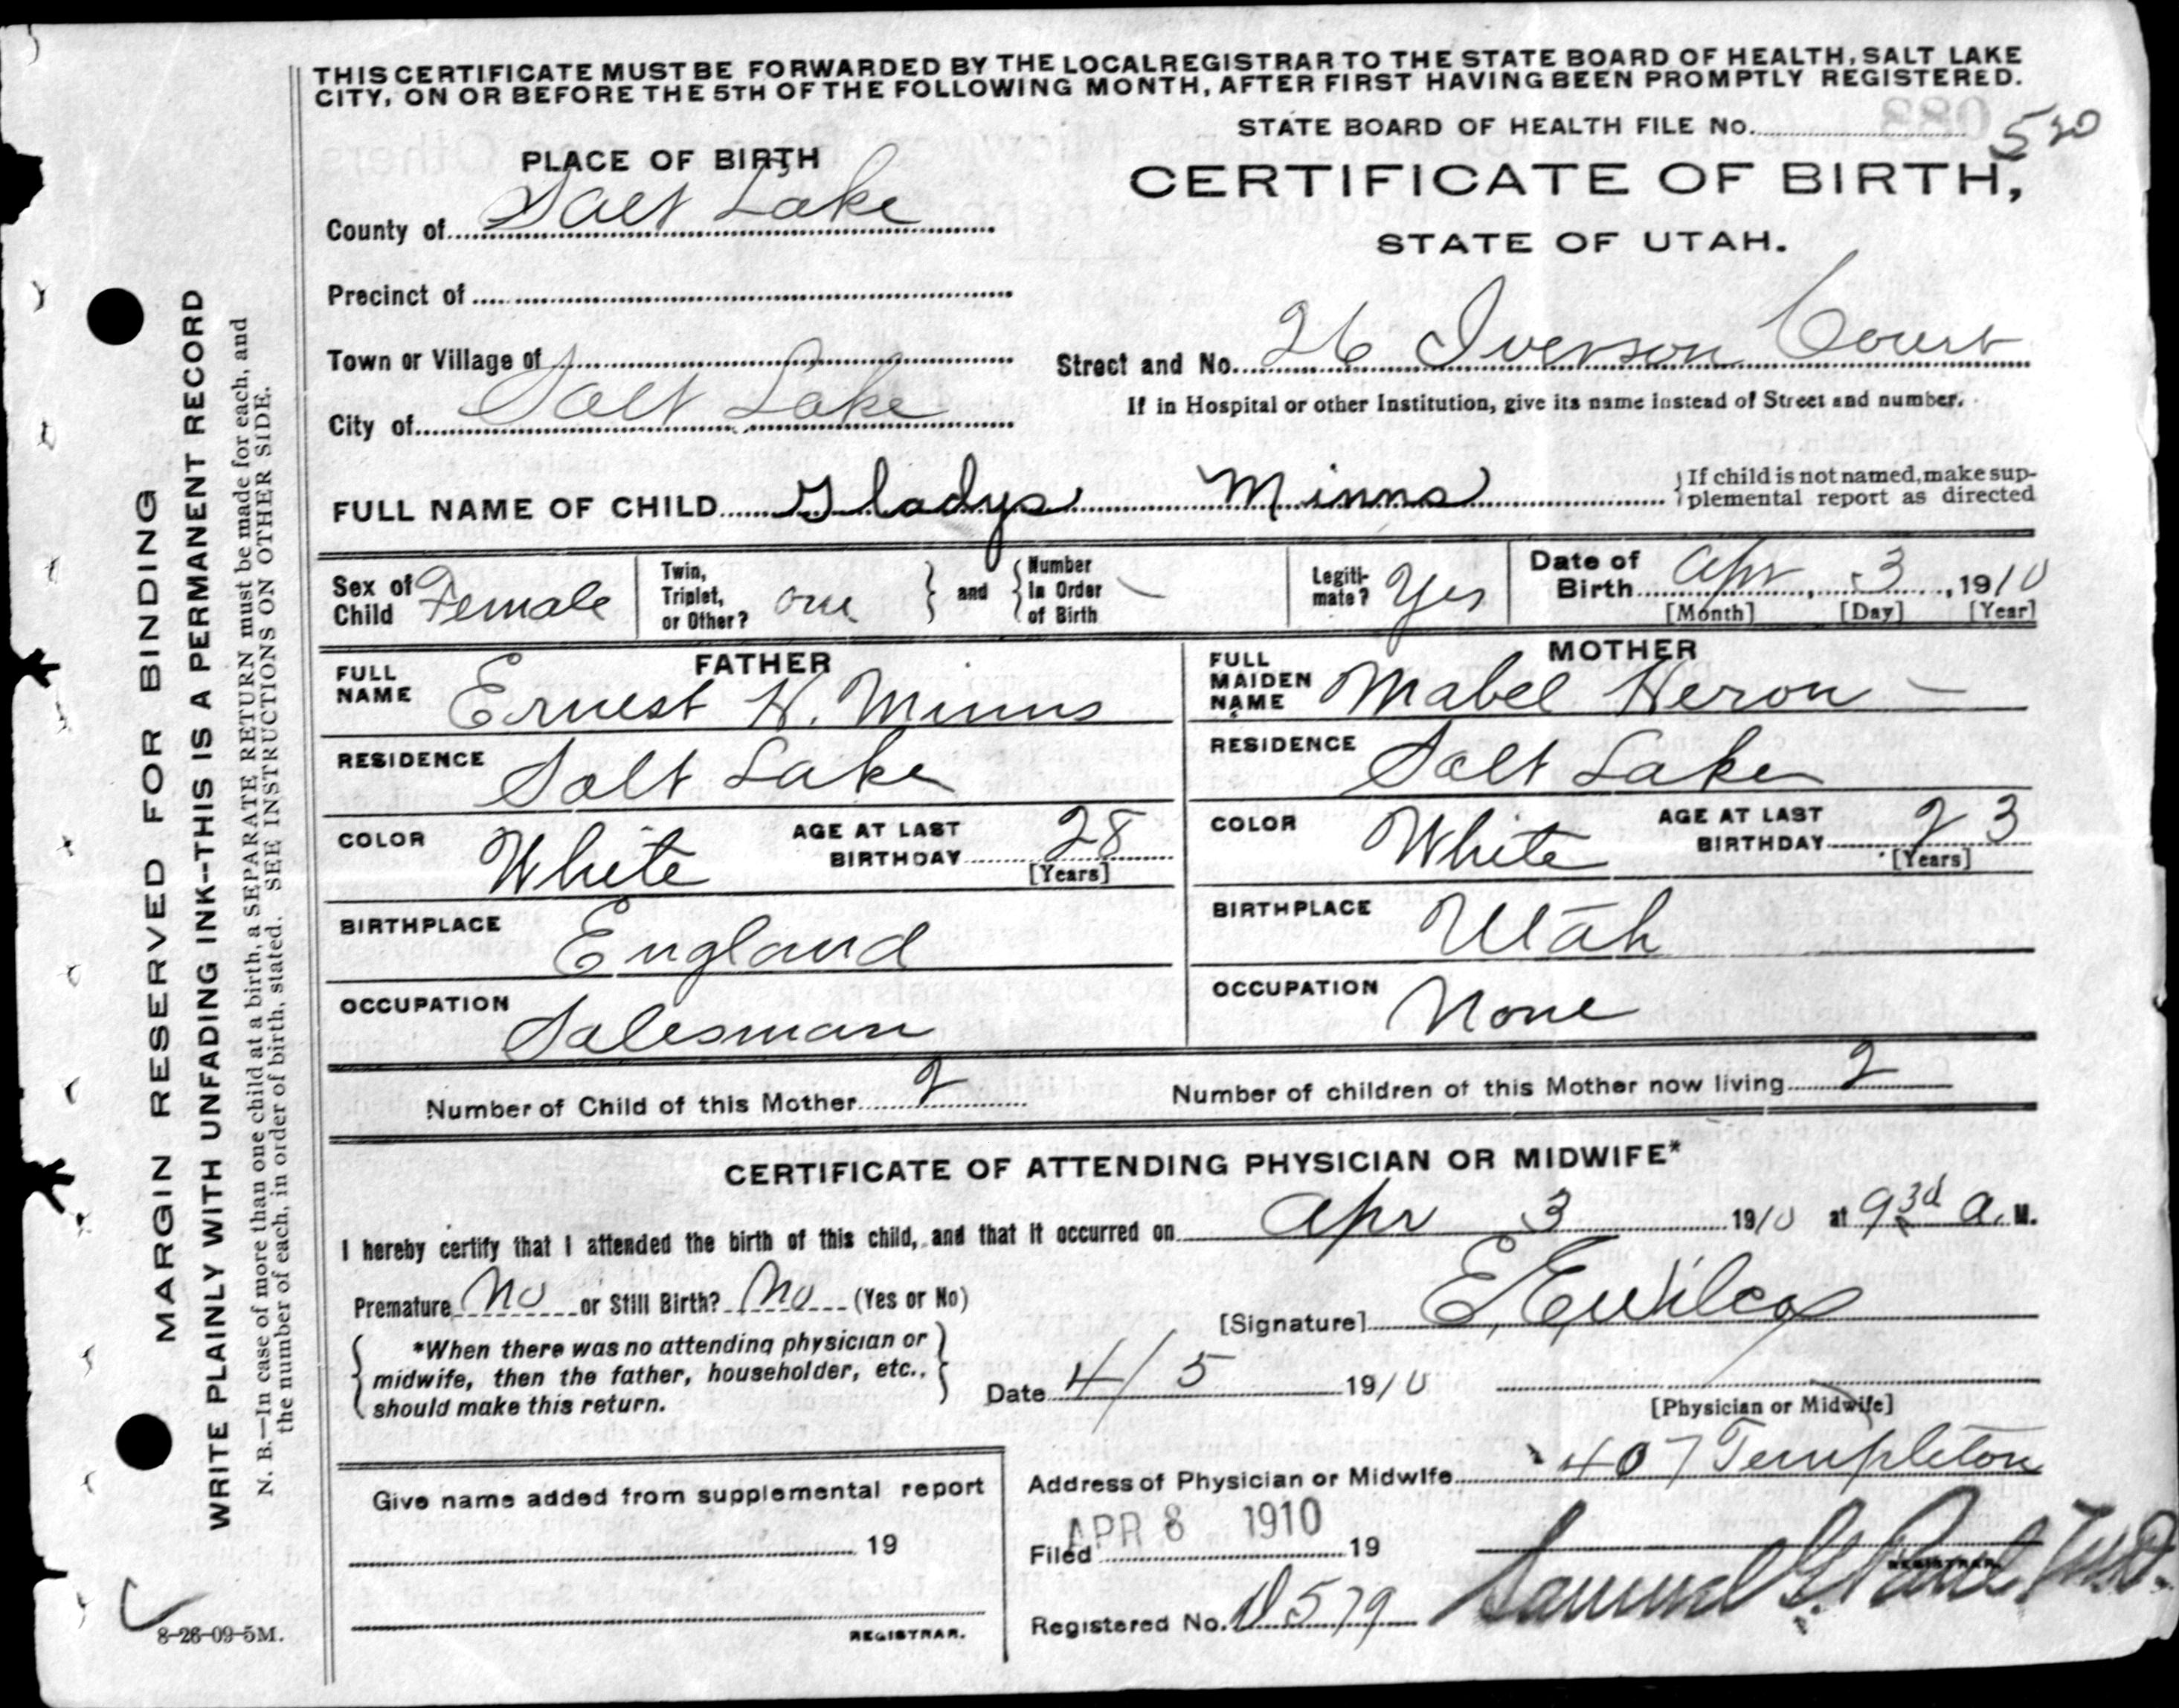 THIS CERTIFICATE MUST BE FORWARDED BY THE LOCAL REGISTRAR TO THE STATE BOARD OF HEALTH, SALT LAKE
CITY, ON OR BEFORE THE 5TH OF THE FOLLOWING MONTH, AFTER FIRST HAVING BEEN PROMPTLY REGISTERED.
STATE BOARD OF HEALTH FILE No. 520
PLACE OF BIRTH
CERTIFICATE OF BIRTH,
STATE OF UTAH.
County of Salt Lake
Precinct of
Town or Village of
Street and No. 26 Iverson Court
If in Hospital or other Institution, give its name instead of Street and number.
City of Salt Lake
FULL NAME OF CHILD Gladys Minns
If child is not named, make sup-
plemental report as directed
Sex of Child Female
Twin, Triplet, or Other? one
and Number in Order of Birth —
Legiti-mate? Yes
Date of Birth Apr, 3, 1910
[Month] [Day] [Year]
FATHER
FULL NAME Ernest H. Minns
RESIDENCE Salt Lake
COLOR White AGE AT LAST BIRTHDAY 28
[Years]
BIRTHPLACE England
OCCUPATION Salesman
MOTHER
FULL MAIDEN NAME Mabel Heron —
RESIDENCE Salt Lake
COLOR White AGE AT LAST BIRTHDAY 23
[Years]
BIRTHPLACE Utah
OCCUPATION None
Number of Child of this Mother 2 Number of children of this Mother now living 2
CERTIFICATE OF ATTENDING PHYSICIAN OR MIDWIFE*
I hereby certify that I attended the birth of this child, and that it occurred on Apr 3 1910 at 9 30 A. M.
Premature No or Still Birth? No (Yes or No)
[Signature] E. E. Wilcox
*When there was no attending physician or
midwife, then the father, householder, etc.,
should make this return.
Date 4/5 1910
[Physician or Midwife]
Address of Physician or Midwife 407 Templeton
Give name added from supplemental report
19
REGISTRAR.
Filed APR 8 1910 19
Registered No. 579
Samuel G. Paul M.D.
REGISTRAR.
MARGIN RESERVED FOR BINDING
WRITE PLAINLY WITH UNFADING INK--THIS IS A PERMANENT RECORD
N. B.—In case of more than one child at a birth, a SEPARATE RETURN must be made for each, and
the number of each, in order of birth, stated. SEE INSTRUCTIONS ON OTHER SIDE.
8-26-09-5M.